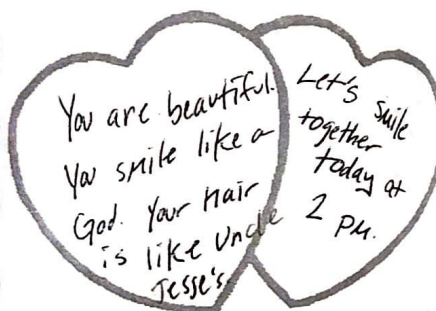 You are beautiful.
You smile like a
God. Your Hair
is like Uncle
Jesse's.
Let's smile
together
today at
2 PM.